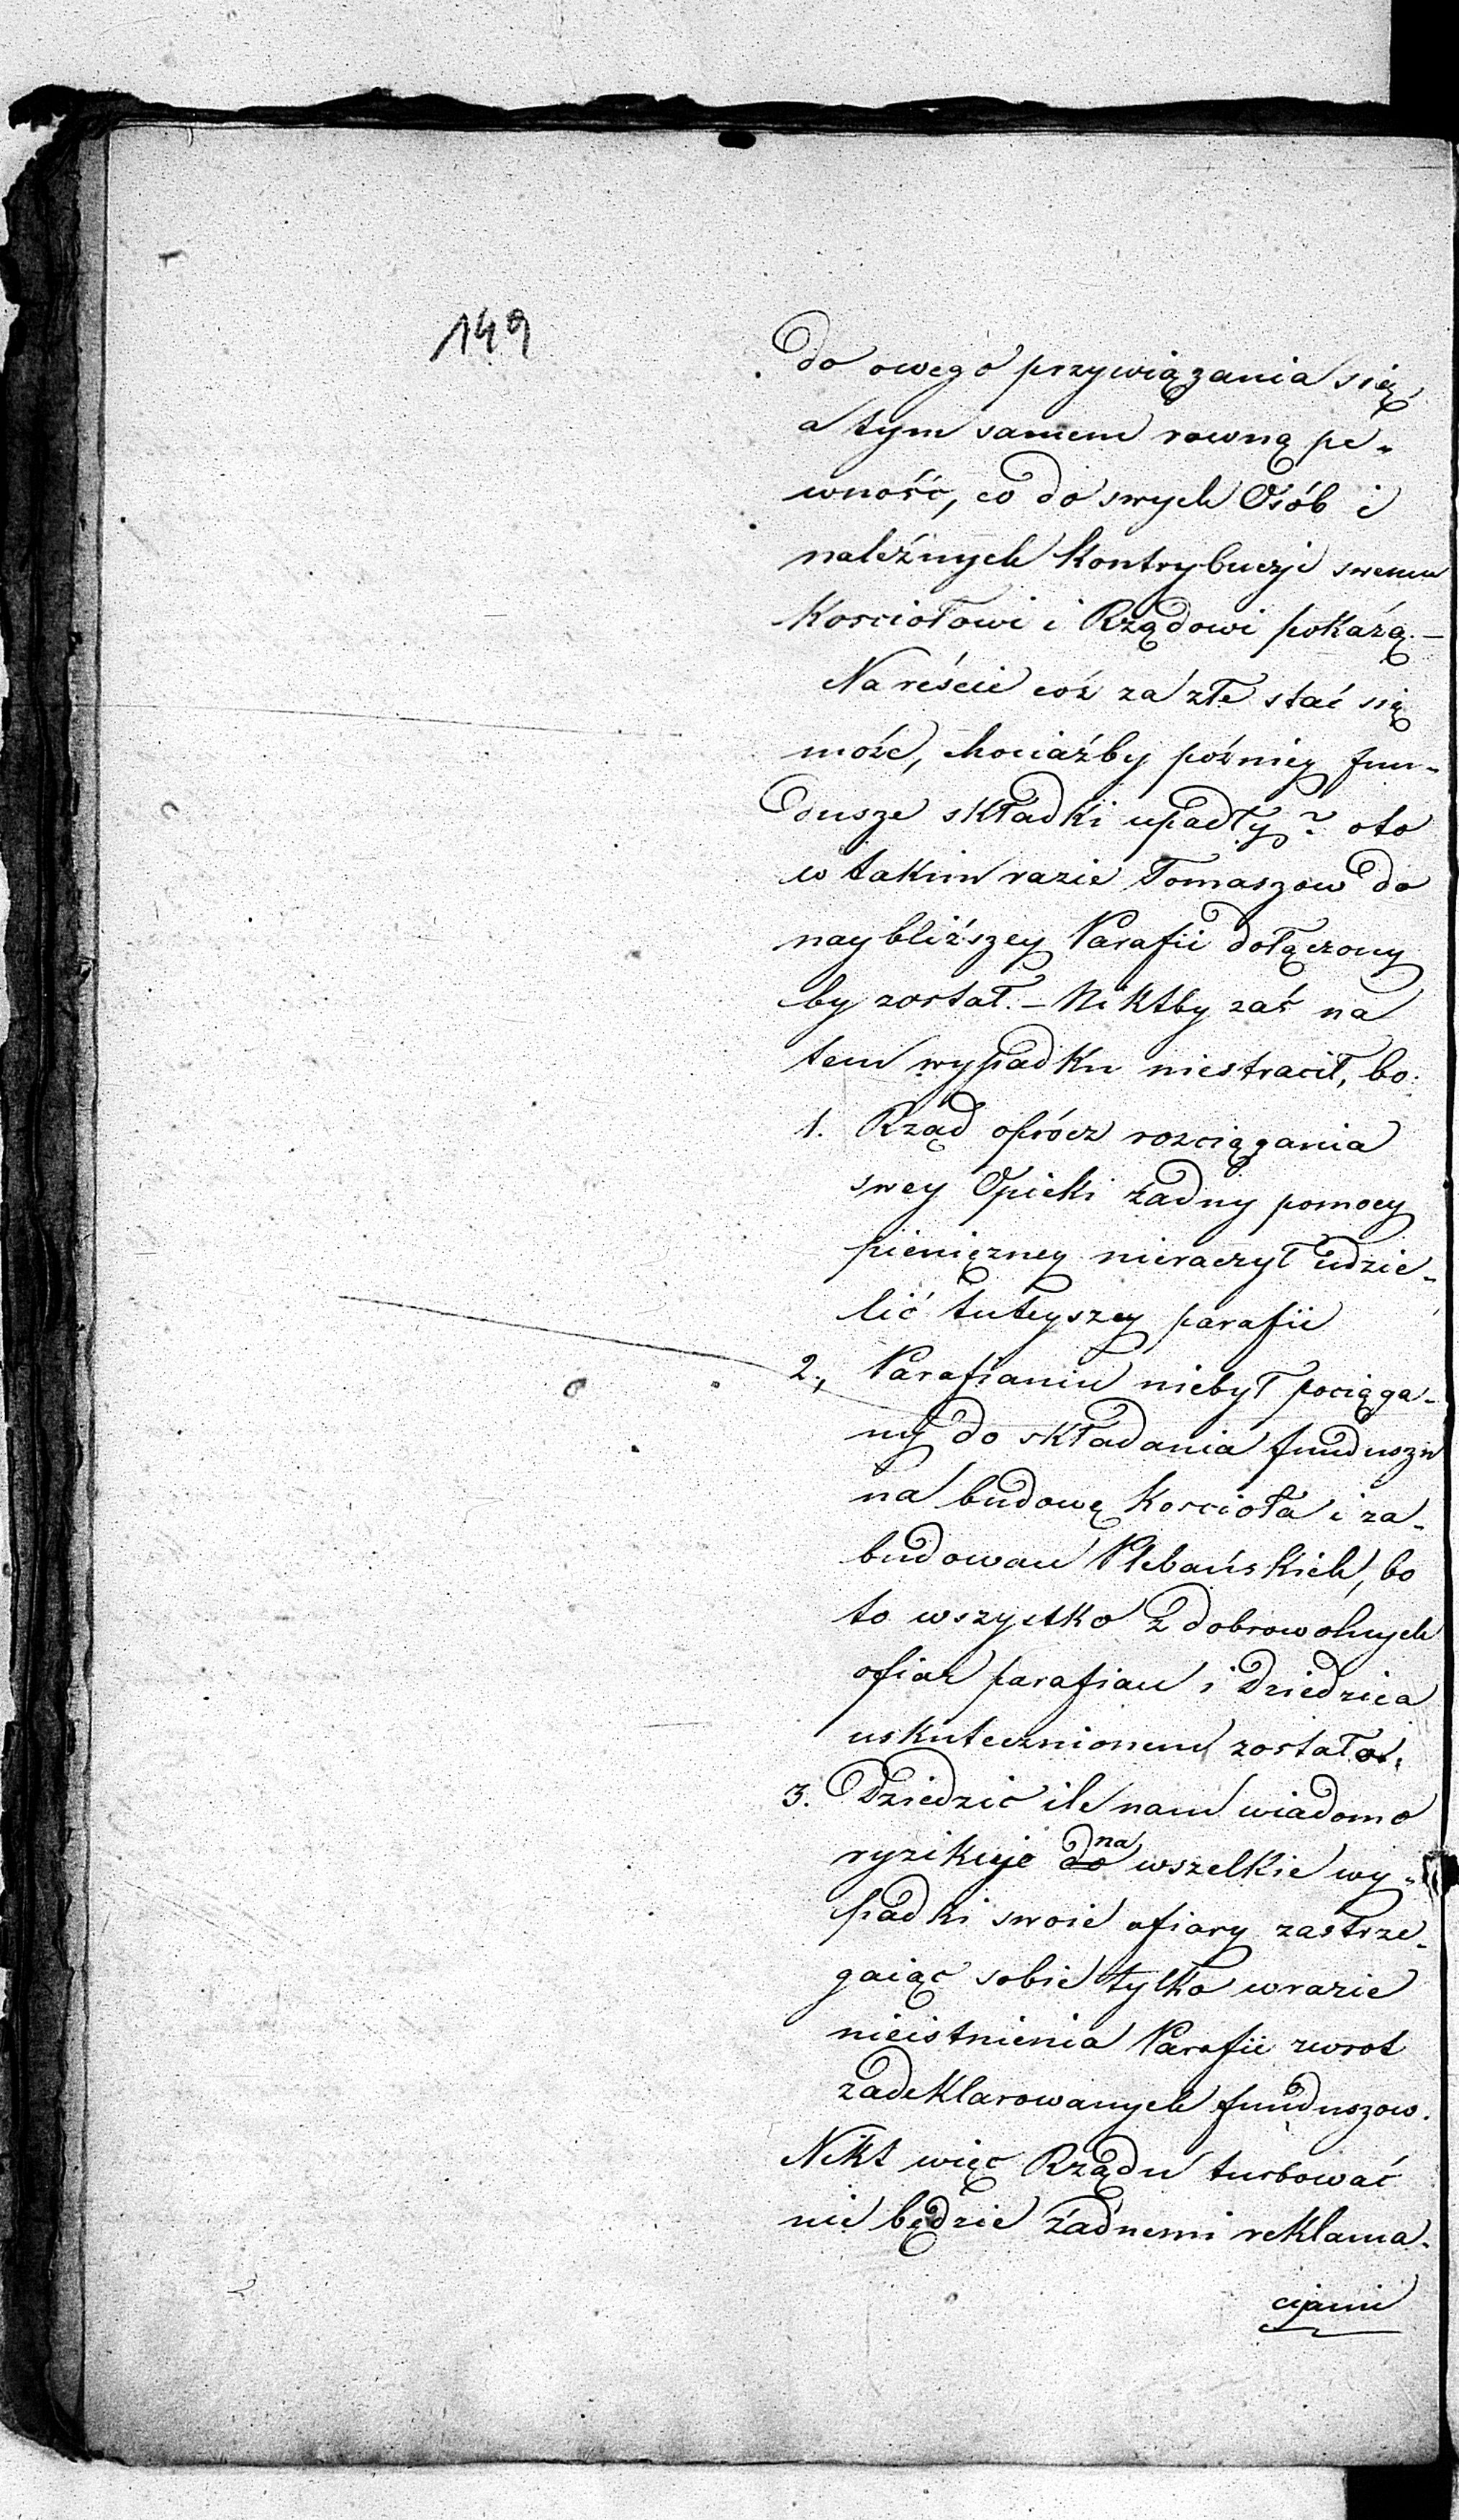 149
do owego przywiązania się
a tym samem rowną pe-
wność, co do swych Osób i
należnych Kontrybucji swemu
Kosciołowi i Rządowi pokażą. –
Nareście coż za złe stać się
może, chociażby poźniey fun-
dusze składki upadły? oto
w takim razie Tomaszow do
naybliższey Parafii dołączony
by został. – Niktby zaś na
tem wypadku niestracił, bo
1. Rząd oprócz rozciągania
swey Opieki żadny pomocy
pieniężney nieraczył udzie-
lić tuteyszey parafii
2., Parafianin niebył pociąga-
ny do składania funduszu
na budowę Koscioła i za-
budowań Plebańskich, bo
to wszystko z dobrowolnych
ofiar parafian i Dziedzica
uskutecznionem zostało.
3. Dziedzic ile nam wiadomo
ryzikuje do na wszelkie wy-
padki swoie ofiary zastrze-
gaiąc sobie tylko wrazie
nieistnienia Parafii zwrot
zadeklarowanych funduszow.
Nikt więc Rządu turbować
nie będzie żadnemi reklama-
cjami